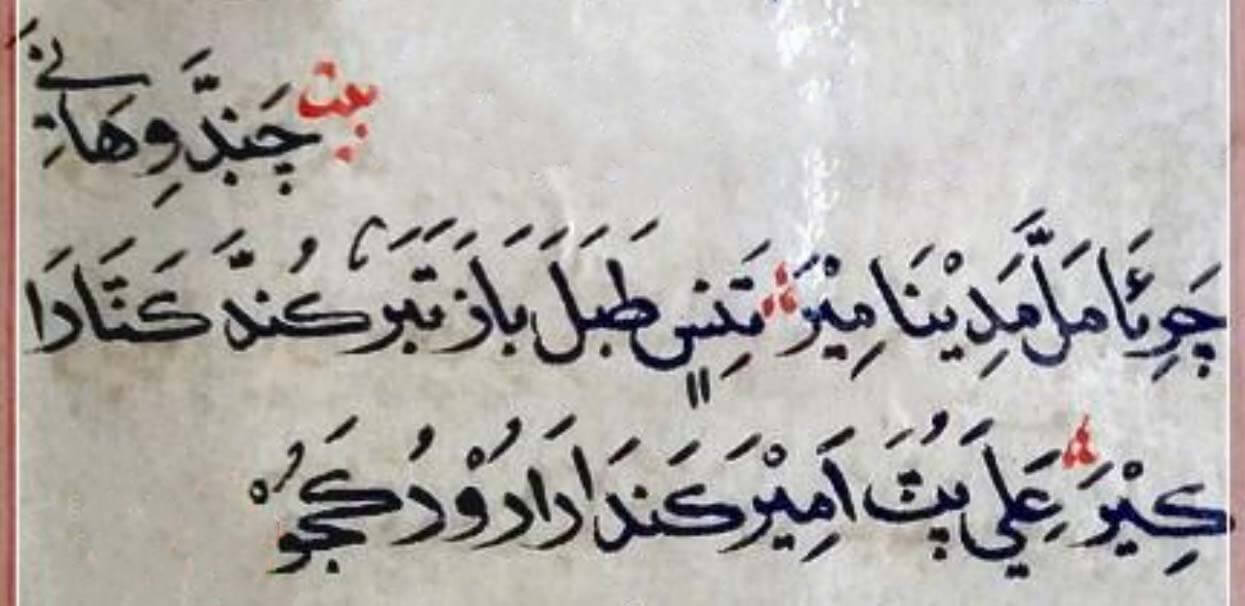 بيت چَندَّ وِهَانِي
چَوِئَا مَلَّ مَدِيْنَا مِيْرَ تَنِسٍ طَبَلَ بَازَ تَبَرَ كُندَّ كَتَارَا
كِيْرَ عَلِيَ پُٽَ اَمِيْرَ كَندَا رَارُوْدُ كَجُوْ